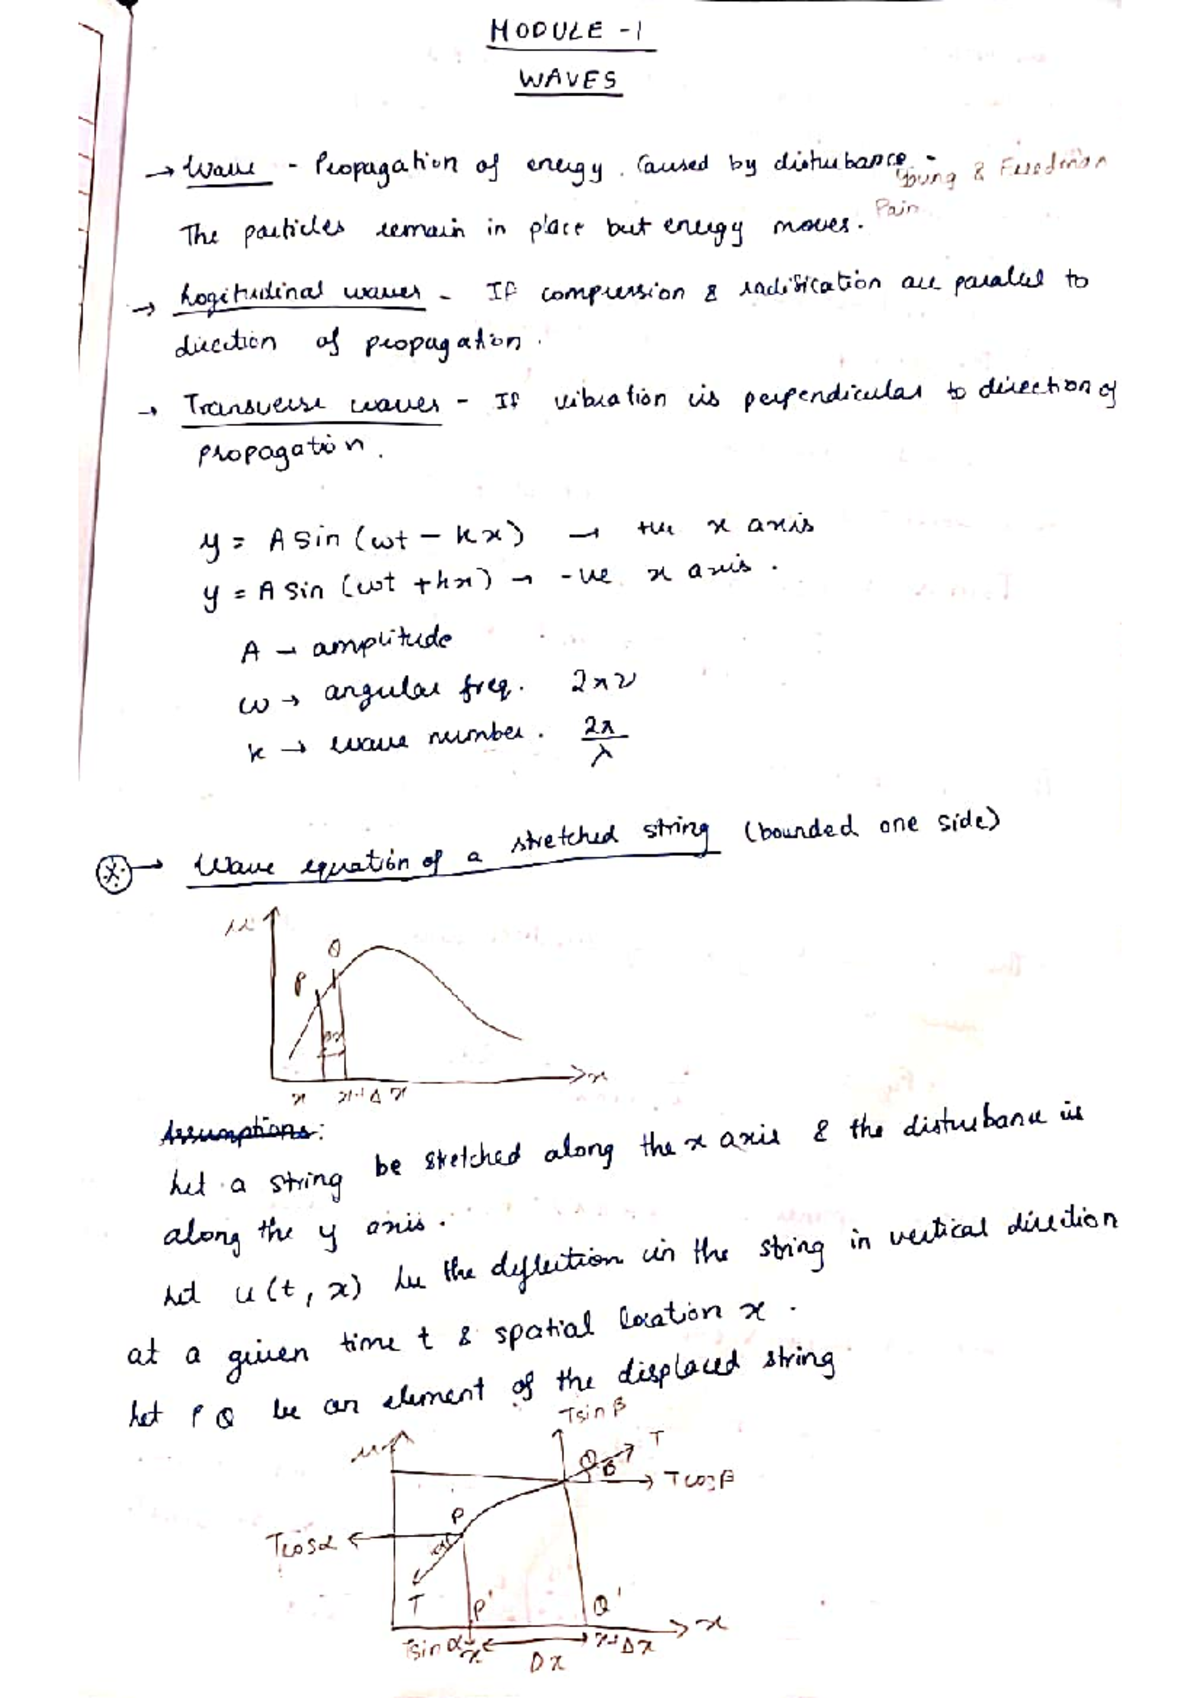 MODULE - 1
WAVES
→ Wave - Propagation of energy. Caused by disturbance. -
Young & Freedman
Pain
The particles remain in place but energy moves.
→ Logitudinal waves - If compression & radification are parallel to
direction of propagation.
→ Transverse waves - If vibration is perpendicular to direction of
propagation.
y = A sin (ωt - kx) → +ve x axis
y = A sin (ωt + kx) → -ve x axis.
A → amplitude
ω → angular freq. 2πν
k → wave number. 2π/λ
→ Wave equation of a stretched string (bounded one side)
u
Q
P
x
x x+Δx
Assumptions:
Let a string be stretched along the x axis & the disturbance is
along the y axis.
Let u(t, x) be the deflection in the string in vertical direction
at a given time t & spatial location x.
Let PQ be an element of the displaced string
T sin β
u
Q β T
T cos β
P
T cos α
α
T P' Q'
x
T sin α x x+Δx
Dx